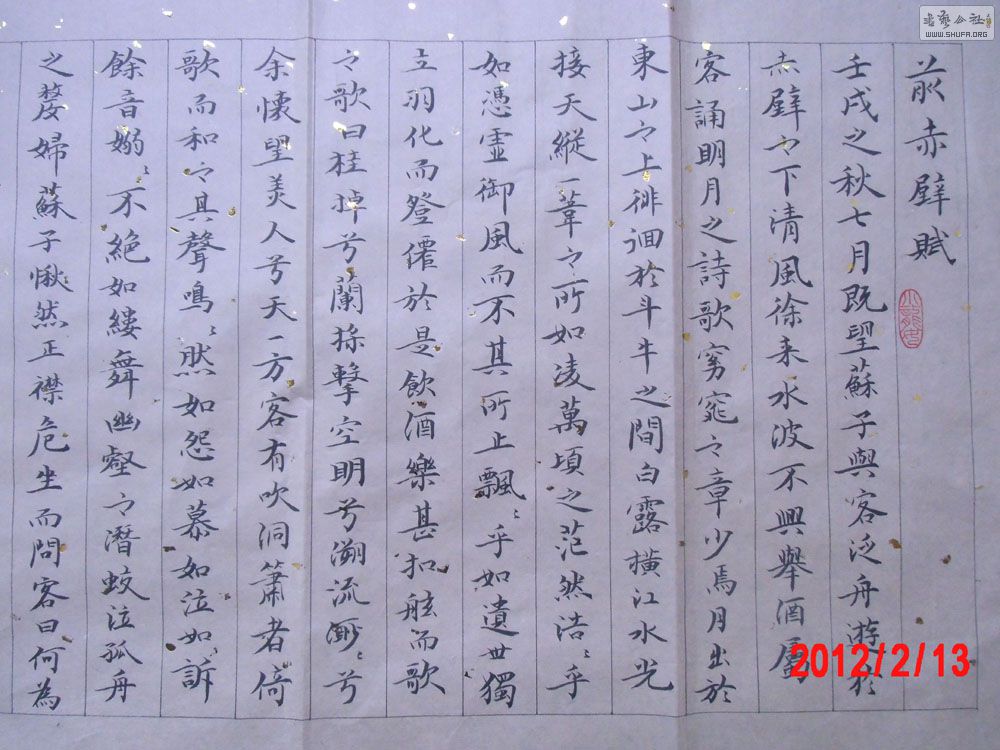 書藝公社
WWW.SHUFA.ORG
前赤壁賦
壬戌之秋七月既望蘇子與客泛舟遊於
赤壁之下清風徐来水波不興舉酒屬
客誦明月之詩歌窈窕之章少焉月出於
東山之上徘徊於斗牛之間白露橫江水光
接天縱一葦之所如凌萬頃之茫然浩〻乎
如憑虛御風而不其所止飄〻乎如遺世獨
立羽化而登僊於是飲酒樂甚扣舷而歌
之歌曰桂棹兮蘭槳擊空明兮溯流渺〻兮
余懷望美人兮天一方客有吹洞簫者倚
歌而和之其聲鳴〻然如怨如慕如泣如訴
餘音嫋〻不絕如縷舞幽壑之潛蛟泣孤舟
之嫠婦蘇子愀然正襟危坐而問客曰何為
2012/2/13